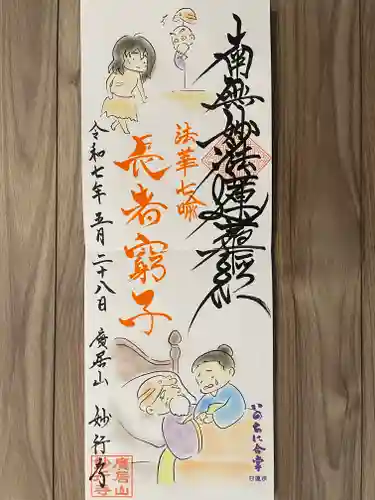 南無妙法蓮華經
法華七喩
長者窮子
令和七年五月二十八日 廣居山 妙行寺
いのちに合掌
廣居山
妙行寺